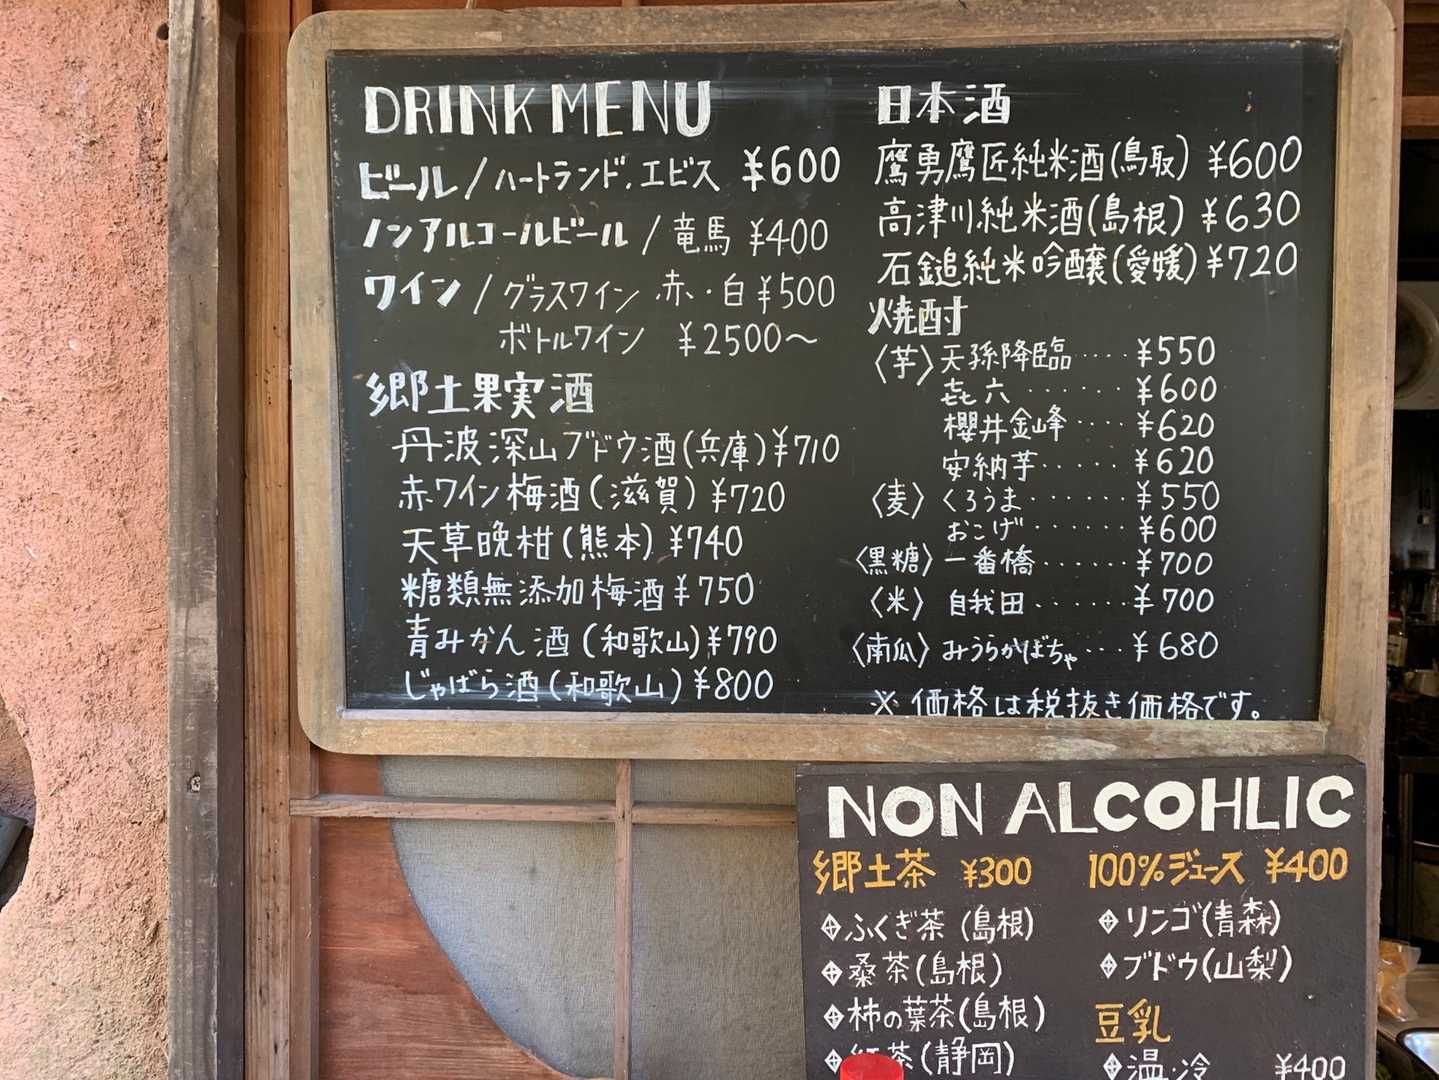 DRINK MENU
ビール/ハートランド、エビス ¥600
ノンアルコールビール/竜馬 ¥400
ワイン/グラスワイン 赤・白 ¥500
ボトルワイン ¥2500〜
郷土果実酒
丹波深山ブドウ酒(兵庫) ¥710
赤ワイン梅酒(滋賀) ¥720
天草晩柑(熊本) ¥740
糖類無添加梅酒 ¥750
青みかん酒(和歌山) ¥790
じゃばら酒(和歌山) ¥800
日本酒
鷹勇鷹匠純米酒(鳥取) ¥600
高津川純米酒(島根) ¥630
石鎚純米吟醸(愛媛) ¥720
焼酎
〈芋〉天孫降臨 ‥‥ ¥550
㐂六 ‥‥‥ ¥600
櫻井金峰 ‥‥ ¥620
安納芋 ‥‥‥ ¥620
〈麦〉くろうま ‥‥‥ ¥550
おこげ ‥‥‥ ¥600
〈黒糖〉一番橋 ‥‥‥ ¥700
〈米〉自我田 ‥‥‥ ¥700
〈南瓜〉みうらかぼちゃ ‥ ¥680
※価格は税抜き価格です。
NON ALCOHLIC
郷土茶 ¥300
ふくぎ茶(島根)
桑茶(島根)
柿の葉茶(島根)
茶(静岡)
100%ジュース ¥400
リンゴ(青森)
ブドウ(山梨)
豆乳
温・冷 ¥400